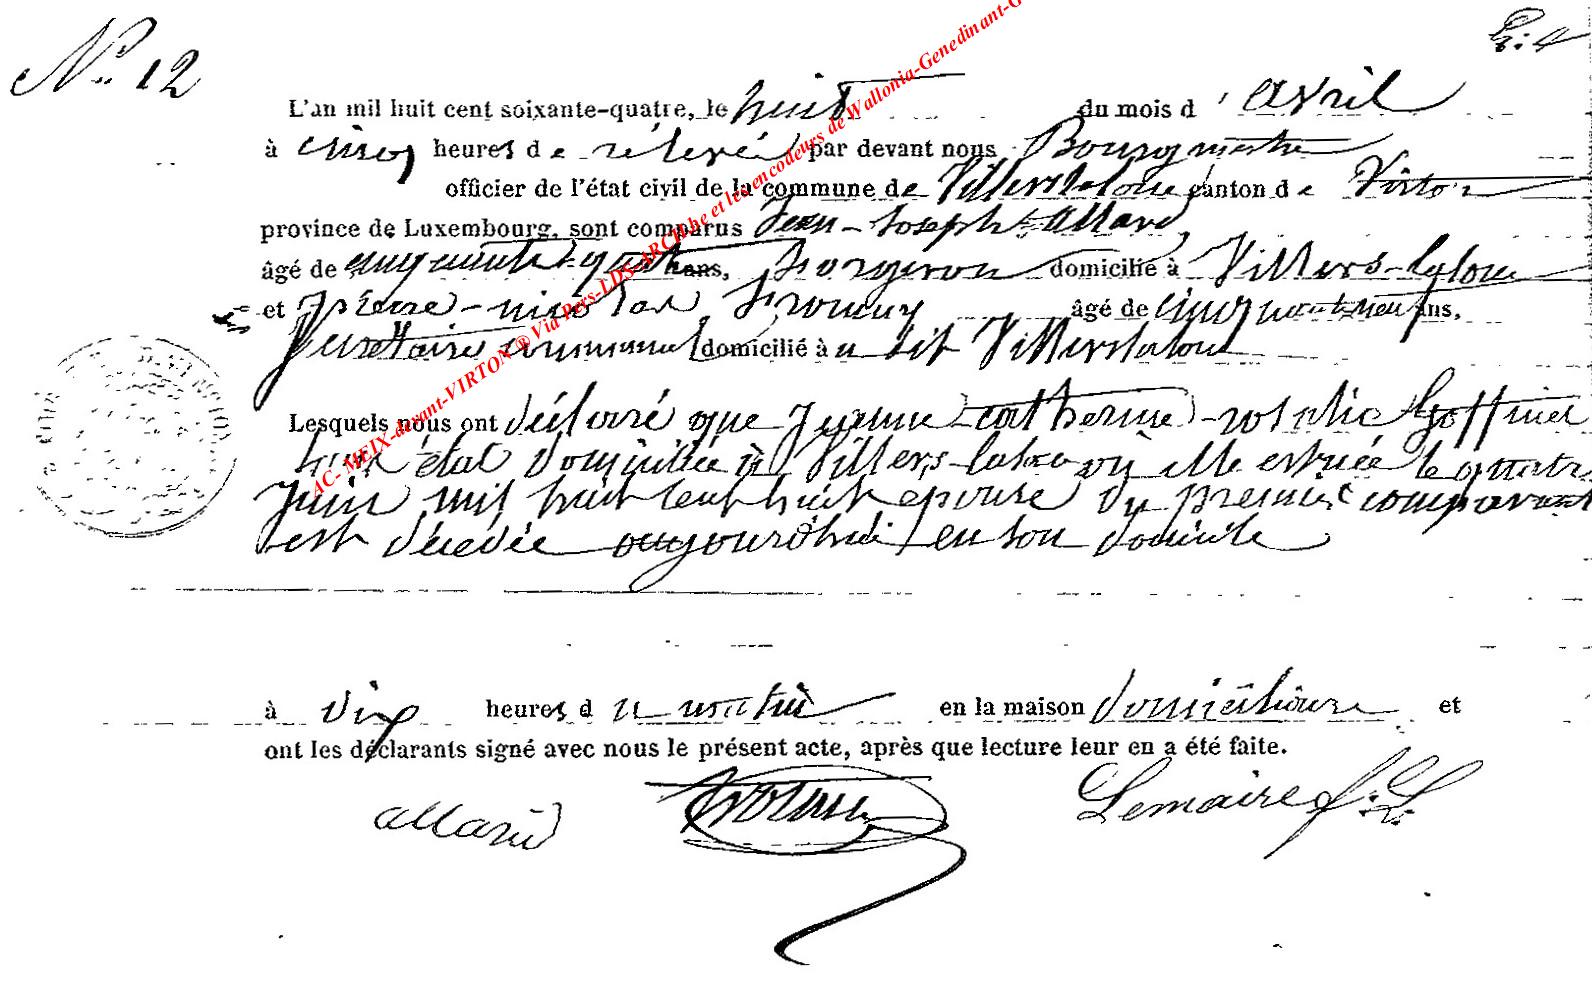 N° 12
L'an mil huit cent soixante-quatre, le huit du mois d'avril
à cinq heures de relevée par devant nous Bourgmestre
officier de l'état civil de la commune de Villerslaloue canton de Virton
province de Luxembourg, sont comparus Jean-Joseph Allard
âgé de cinquante-quatre ans, forgeron domicilié à Villers-laloue
et Pierre-nicolas âgé de cinquante neuf ans,
Secrétaire communal domicilié à u dit Villerslaloue
Lesquels nous ont déclaré que Jeanne catherine-rosalie Goffinet
état domiciliée à Villers-laloue où elle est née le quatre
Juin mil huit cent huit épouse du premier comparant
est décédée aujourd'hui en son domicile
à dix heures du matin en la maison domiciliaire et
ont les déclarants signé avec nous le présent acte, après que lecture leur en a été faite.
allard Lemaire f.
AC- MEIX-devant-VIRTON® Via Pers-LDS-ARCH.be et les encodeurs de Wallonia-Genedinant-G